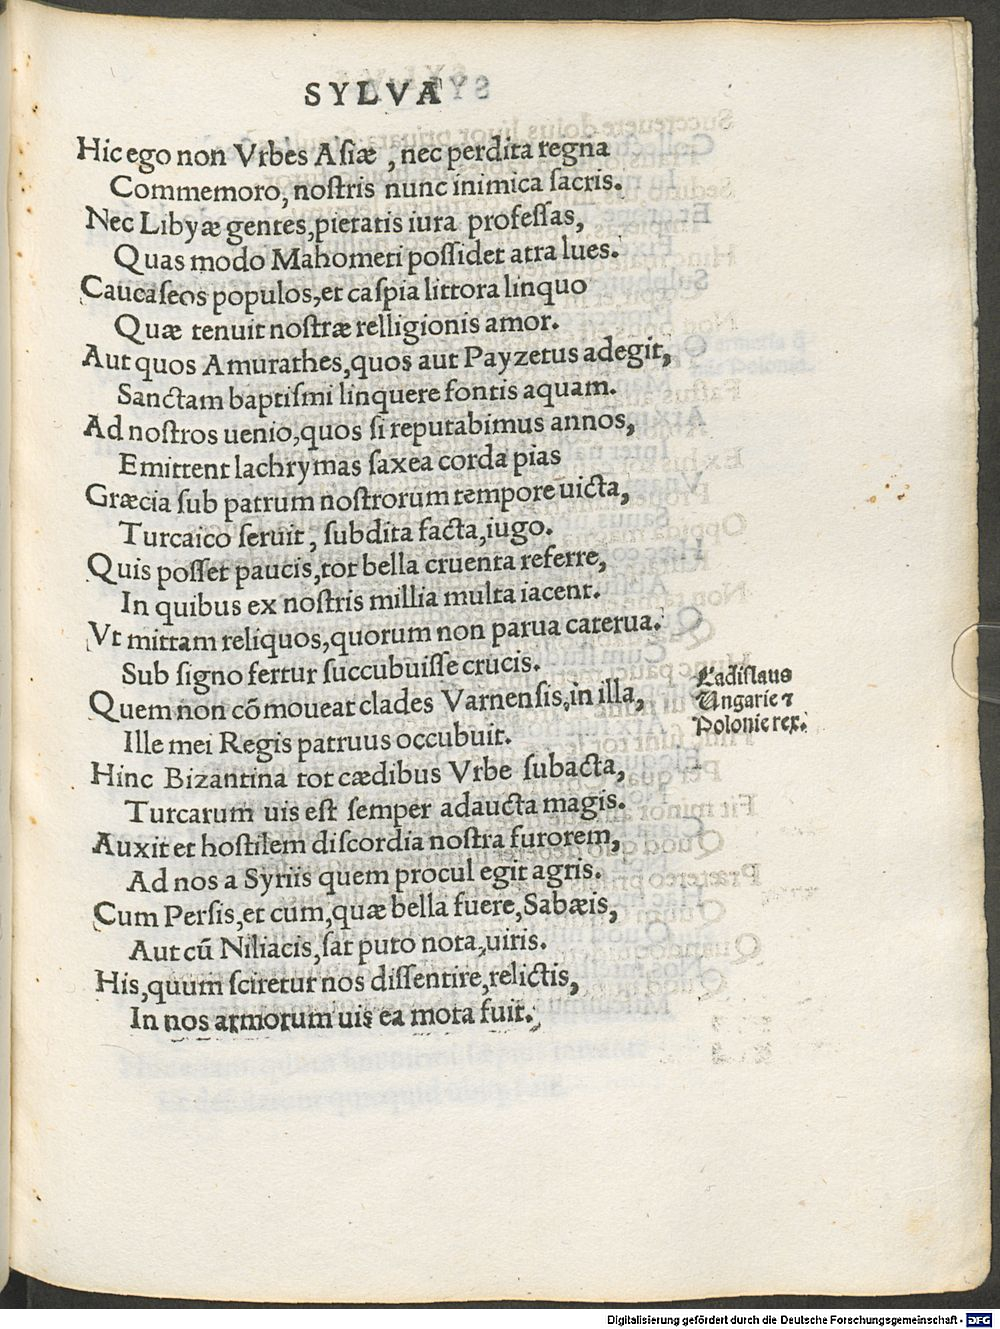 SYLVA
Hic ego non Vrbes Asiæ, nec perdita regna
Commemoro, nostris nunc inimica sacris.
Nec Libyæ gentes, pietatis iura professas,
Quas modo Mahometi possidet atra lues.
Caucaseos populos, et caspia littora linquo
Quæ tenuit nostræ relligionis amor.
Aut quos Amurathes, quos aut Payzetus adegit,
Sanctam baptismi linquere fontis aquam.
Ad nostros uenio, quos si reputabimus annos,
Emittent lachrymas saxea corda pias
Græcia sub patrum nostrorum tempore uicta,
Turcaico seruit, subdita facta, iugo.
Quis posset paucis, tot bella cruenta referre,
In quibus ex nostris millia multa iacent.
Vt mittam reliquos, quorum non parua caterua.
Sub signo fertur succubuisse crucis.
Quem non cōmoueat clades Varnensis, in illa,
Ille mei Regis patruus occubuit.
Hinc Bizantina tot cædibus Vrbe subacta,
Turcarum uis est semper adaucta magis.
Auxit et hostilem discordia nostra furorem,
Ad nos a Syriis quem procul egit agris.
Cum Persis, et cum, quæ bella fuere, Sabæis,
Aut cū Niliacis, sat puto nota, uiris.
His, quum sciretur nos dissentire, relictis,
In nos armorum uis ea mota fuit.
Ladislaus
Ungarie ⁊
Polonie rex.
Digitalisierung gefördert durch die Deutsche Forschungsgemeinschaft - DFG